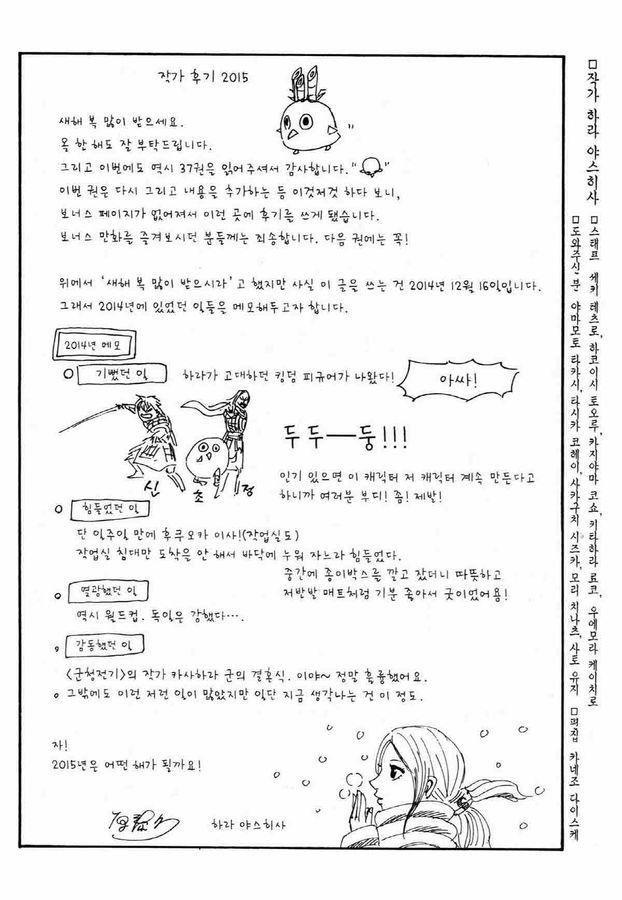 작가 후기 2015
새해 복 많이 받으세요.
올 한해도 잘 부탁드립니다.
그리고 이번에도 역시 37권을 읽어주셔서 감사합니다.
이번 권은 다시 그리고 내용을 추가하는 등 이것저것 하다 보니,
보너스 페이지가 없어져서 이런 곳에 후기를 쓰게 됐습니다.
보너스 만화를 즐겨보시던 분들께는 죄송합니다. 다음 권에는 꼭!
위에서 '새해 복 많이 받으시라'고 했지만 사실 이 글을 쓰는 건 2014년 12월 16일입니다.
그래서 2014년에 있었던 일들을 메모해두고자 합니다.
2014년 메모
기뻤던 일
하라가 고대하던 킹덤 피규어가 나왔다!
아싸!
신 초 정
두두—둥!!!
인기 있으면 이 캐릭터 저 캐릭터 계속 만든다고
하니까 여러분 부디! 좀! 제발!
힘들었던 일
단 일주일 만에 후쿠오카 이사!(작업실도)
작업실 침대만 도착을 안 해서 바닥에 누워 자느라 힘들었다.
중간에 종이박스를 깔고 잤더니 따뜻하고
저반발 매트처럼 기분 좋아서 굿이었어용!
열광했던 일
역시 월드컵. 독일은 강했다….
감동했던 일
<군청전기>의 작가 카사하라 군의 결혼식. 이야~ 정말 훌륭했어요.
그밖에도 이런 저런 일이 많았지만 일단 지금 생각나는 건 이 정도.
자!
2015년은 어떤 해가 될까요!
하라 야스히사
□작가 하라 야스히사
□스태프 세키 테츠로, 하코이시 토오루, 카지야마 코쇼, 키타하라 료코, 우에모라 케이치로
□도와주신 분 야마모토 타카시, 타시카 코헤이, 사카구치 시즈카, 모리 치나츠, 사토 유지 □편집 카네조 다이스케